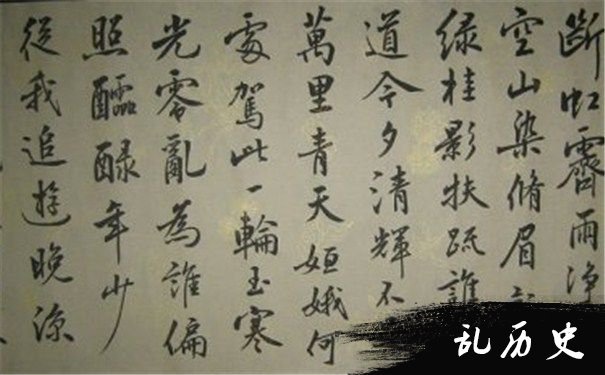 斷虹霽雨淨
空山染脩眉
綠桂影扶疏誰
道今夕清輝不
萬里青天姮娥何
處駕此一輪玉寒
光零亂為誰偏
照醽醁年少
從我追遊晚涼
乱历史